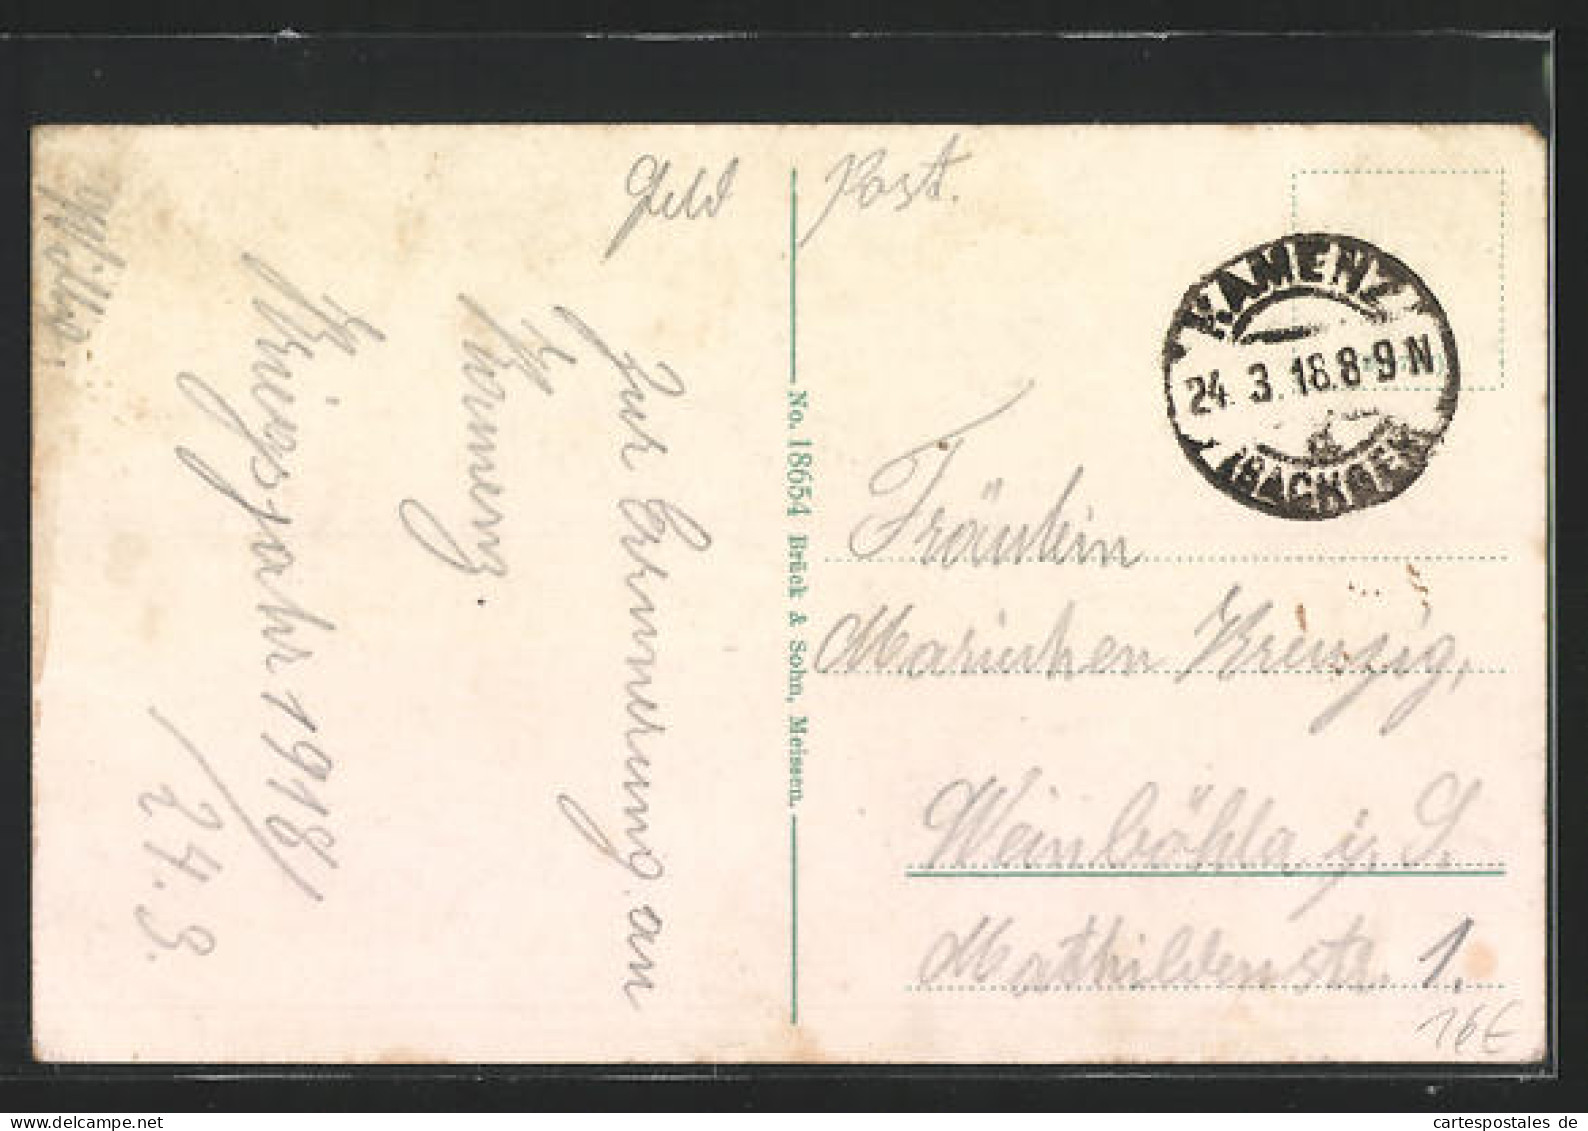 Feld Post.
Zur Erinnerung an
Kamenz.
Kriegsjahr 1918
24. 3.
No. 18654 Brück & Sohn, Meissen.
KAMENZ
24. 3. 18. 8-9 N
(SACHSEN)
Fräulein
Mariechen
Weinböhla i. S.
Mathildenstr. 1.
16€
cartespostales de